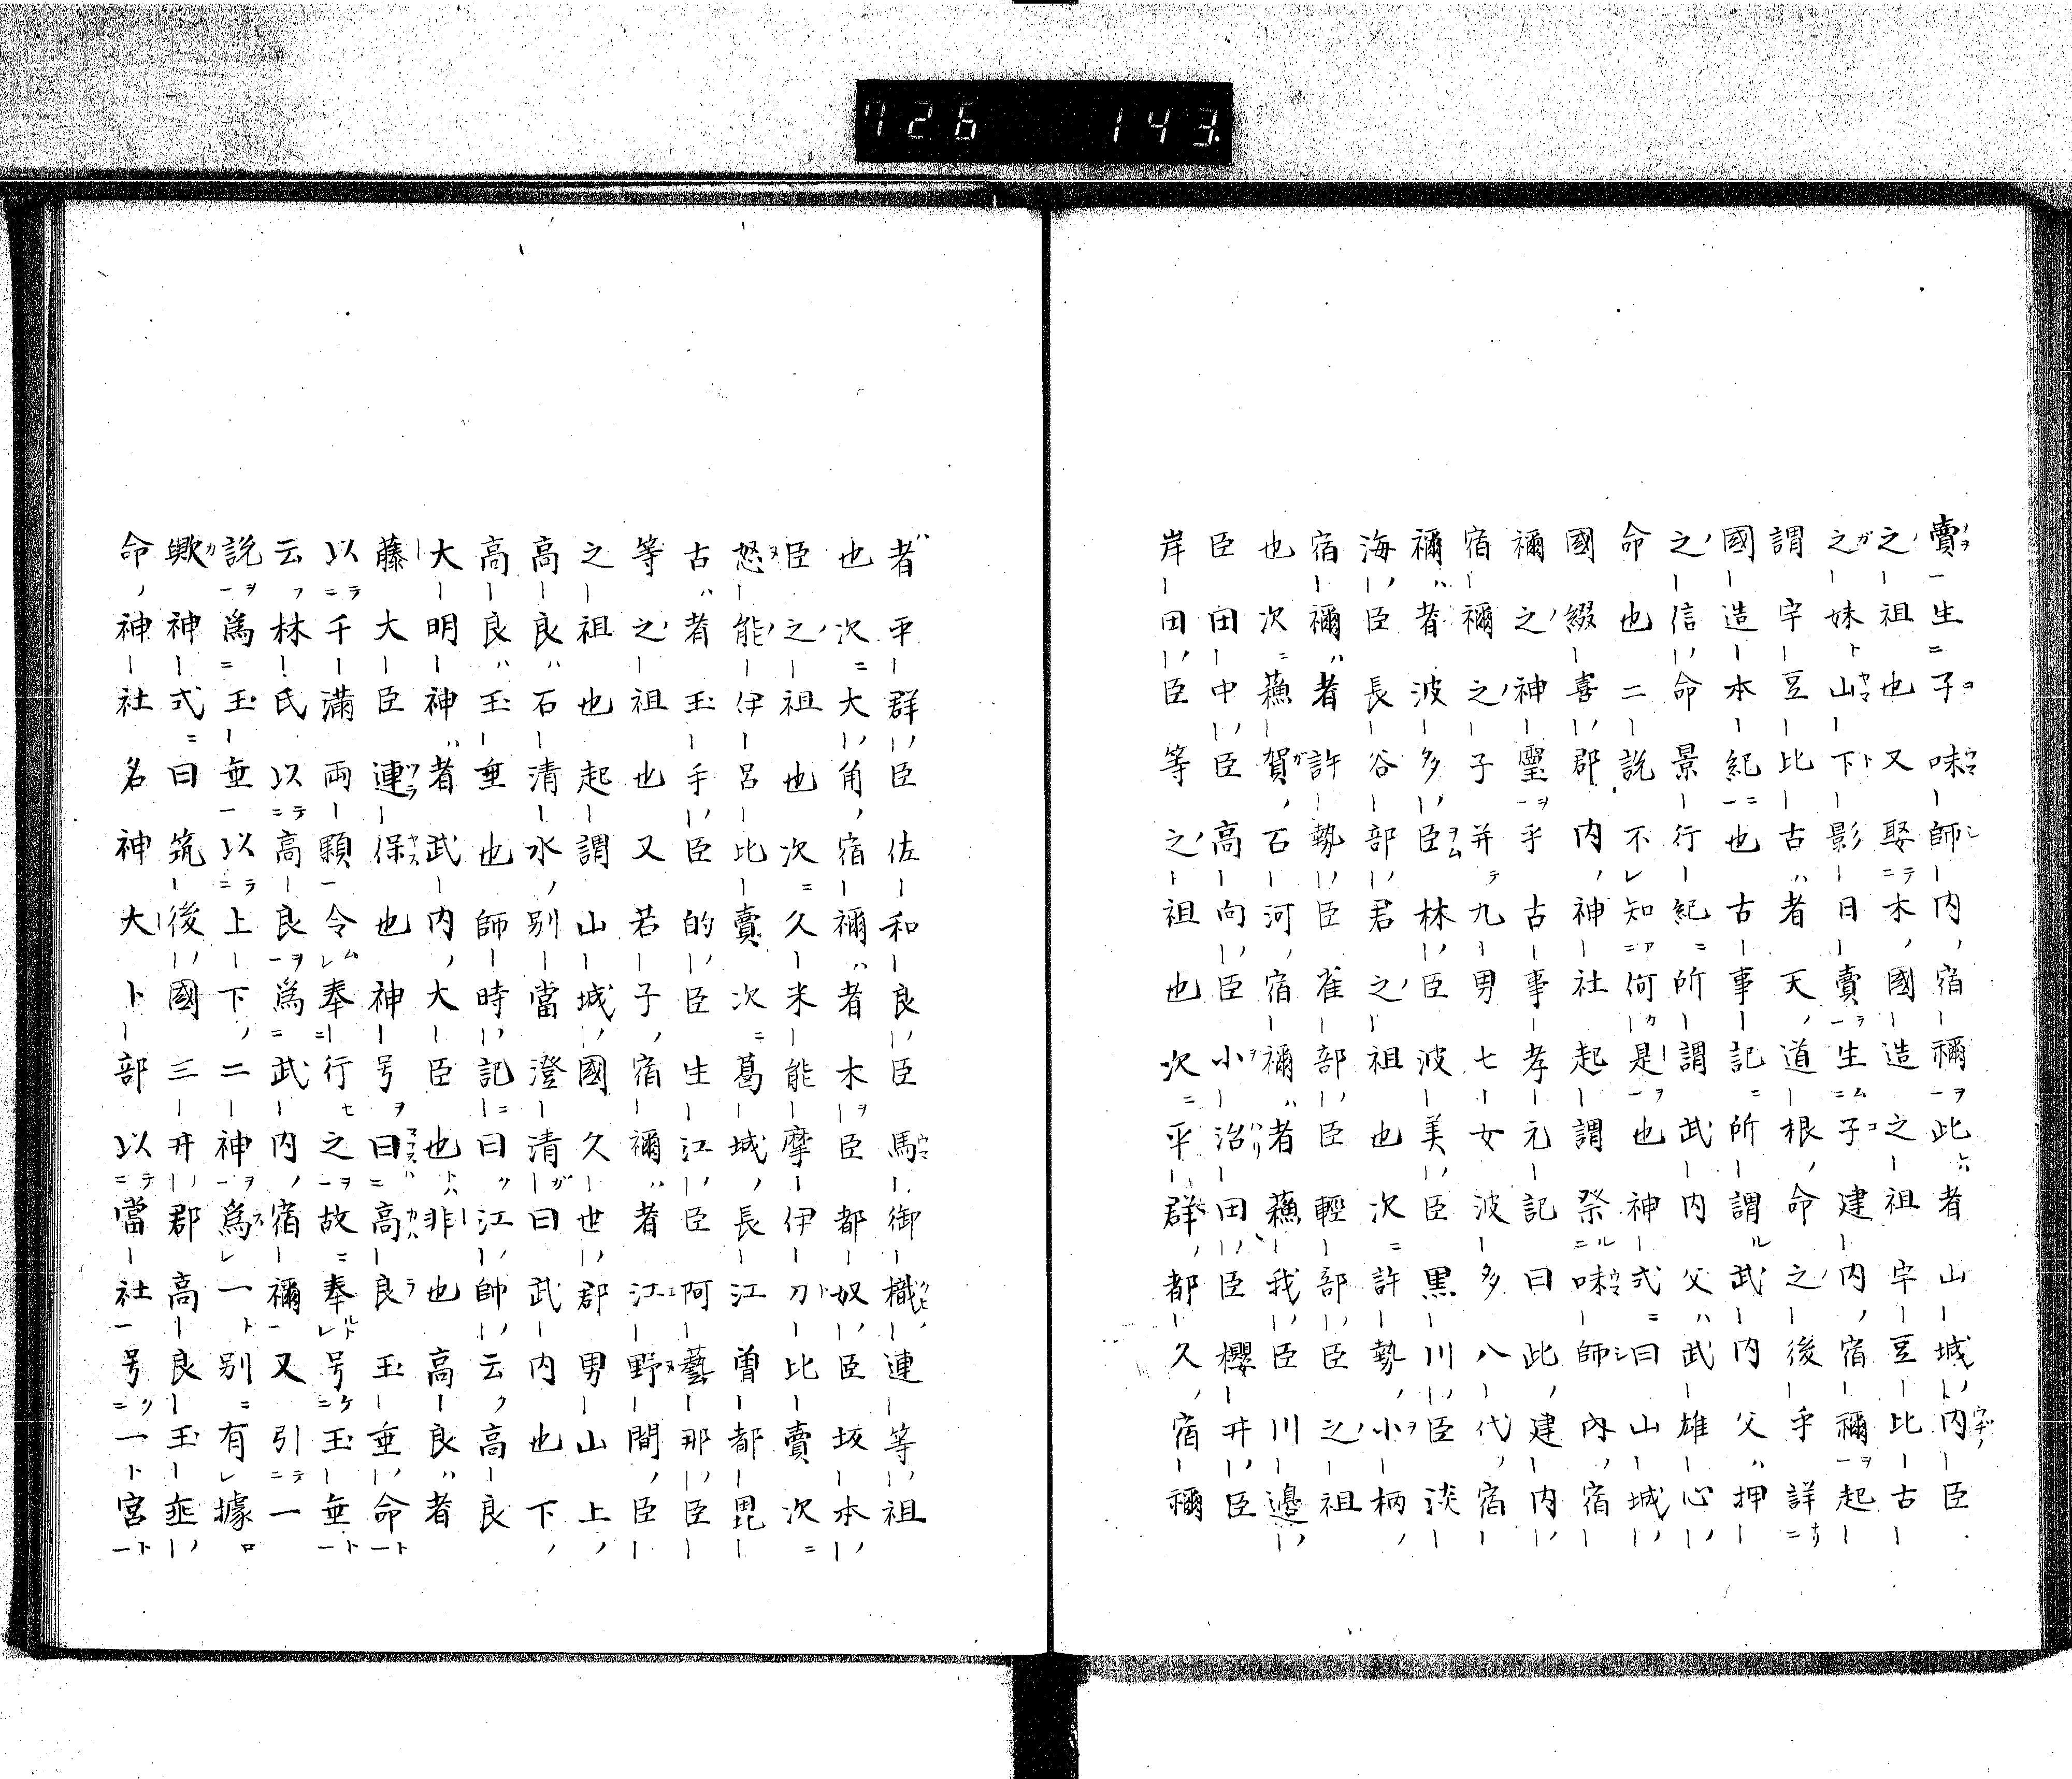 賣生子味師内宿禰此者山城内臣
之祖也又娶木國造之祖宇豆比古
之妹山下影日賣生子建内宿禰起
謂宇豆比古者天道根命之後乎詳
國造本紀也古事記所謂武内父押
之信命景行紀所謂武内父武雄心
命也二說不知何是也神式曰山城
國綴喜郡内神社起謂祭味師内宿
禰之神靈乎古事孝元記曰此建内
宿禰之子并九男七女波多八代宿
禰者波多臣林臣波美臣黒川臣淡
海臣長谷部君之祖也次許勢小柄
宿禰者許勢臣雀部臣輕部臣之祖
也次蘓賀石河宿禰者蘓我臣川邉
臣田中臣高向臣小治田臣櫻井臣
岸田臣等之祖也次平群都久宿禰
者平群臣佐和良臣馬御樴連等祖
也次大角宿禰者木臣都奴臣坂本
臣之祖也次久米能摩伊刀比賣次
怒能伊呂比賣次葛城長江曽都毘
古者玉手臣的臣生江臣阿藝那臣
等之祖也又若子宿禰者江野間臣
之祖也起謂山城國久世郡男山上
高良石清水別當澄清曰武内也下
高良玉垂也師時記曰江帥云高良
大明神者武内大臣也非也高良者
藤大臣連保也神号曰高良玉垂命
以千滿兩顆令奉行之故奉号玉垂
云林氏以高良爲武内宿禰又引一
說爲玉垂以上下二神爲一別有據
歟神式曰筑後國三井郡高良玉垂
命神社名神大卜部以當社号一宮
726 143